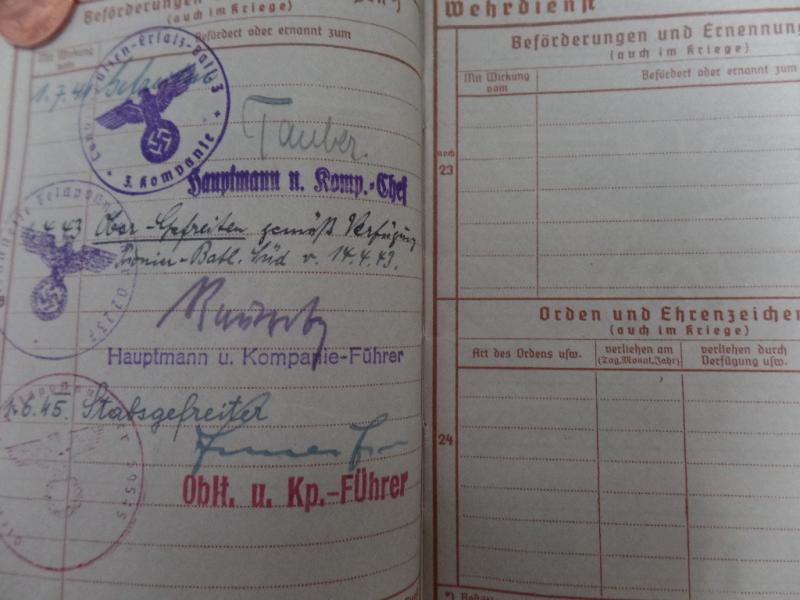 Beförderungen
(auch im Kriege)
Mit Wirkung vom
Befördert oder ernannt zum
-Ersatz-Batl. 3
3. Kompanie
1.7.41 Gefreiten
Tauber.
Hauptmann u. Komp.-Chef
1.4.43 Ober-Gefreiten gemäß Verfügung
Pionier-Batl. Süd v. 14.4.43.
Feldpost
02237
Hauptmann u. Kompanie-Führer
1.6.45. Stabsgefreiter
Oblt. u. Kp.-Führer
Wehrdienst
Beförderungen und Ernennung
(auch im Kriege)
Mit Wirkung vom
Befördert oder ernannt zum
noch
23
Orden und Ehrenzeichen
(auch im Kriege)
Art des Ordens usw.
verliehen am
(Tag, Monat, Jahr)
verliehen durch
Verfügung usw.
24